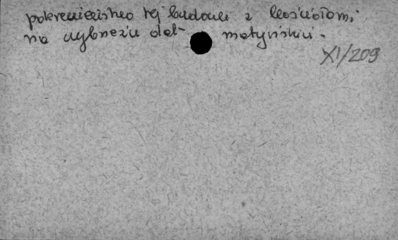 pokrewieństwo tej budowli z kościołami
na wybrzeżu dalmatyńskim.
XI/209